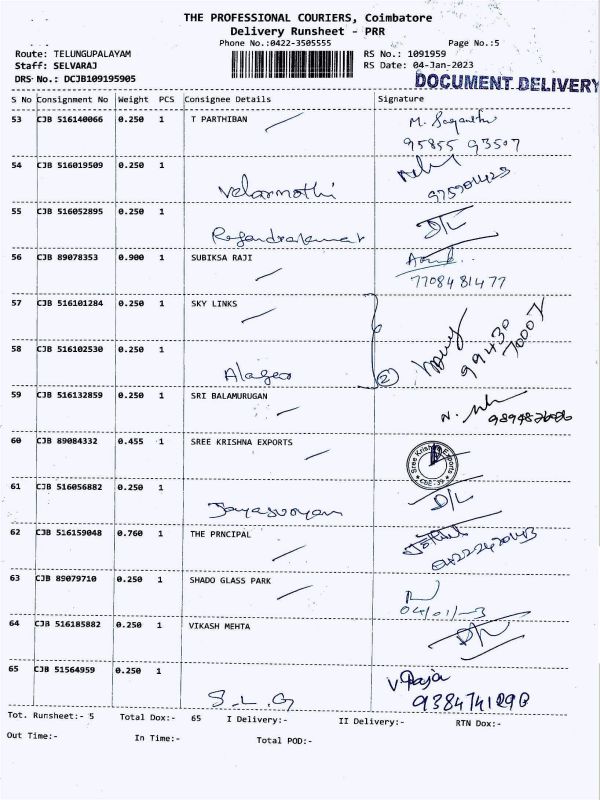 THE PROFESSIONAL COURIERS, Coimbatore
Delivery Runsheet - PRR
Phone No.:0422-3505555 Page No.:5
Route: TELUNGUPALAYAM RS No.: 1091959
Staff: SELVARAJ RS Date: 04-Jan-2023
DRS No.: DCJB109195905 DOCUMENT DELIVERY
S No Consignment No Weight PCS Consignee Details Signature
53 CJB 516140066 0.250 1 T PARTHIBAN
95855 93507
54 CJB 516019509 0.250 1
Velanmothi
55 CJB 516052895 0.250 1 D/L
Rajendrakumar
56 CJB 89078353 0.900 1 SUBIKSA RAJI
7708481477
57 CJB 516101284 0.250 1 SKY LINKS
99430
70007
58 CJB 516102530 0.250 1
Alages 2
59 CJB 516132859 0.250 1 SRI BALAMURUGAN
60 CJB 89084332 0.455 1 SREE KRISHNA EXPORTS
Sree Krishna Exports
CBE-39
61 CJB 516056882 0.250 1 D/L
62 CJB 516159048 0.760 1 THE PRNCIPAL
63 CJB 89079710 0.250 1 SHADO GLASS PARK
04/01/-3
64 CJB 516185882 0.250 1 VIKASH MEHTA
D/L
65 CJB 51564959 0.250 1 V Raja
S.L.G 9384741290
Tot. Runsheet:- 5 Total Dox:- 65 I Delivery:- II Delivery:- RTN Dox:-
Out Time:- In Time:- Total POD:-